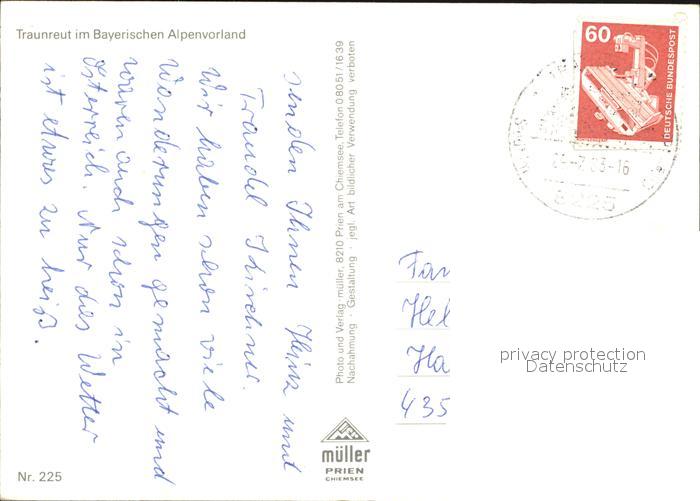 Traunreut im Bayerischen Alpenvorland
senden Ihnen Heinz und
Traudel Kirchner.
Wir haben schon viele
Wanderungen gemacht und
waren auch schon in
Österreich. Nur das Wetter
ist etwas zu heiß.
Nr. 225
Photo und Verlag · müller, 8210 Prien am Chiemsee, Telefon 08051/1639
Nachahmung · Gestaltung · jegl. Art bildlicher Verwendung verboten
müller
PRIEN
CHIEMSEE
60
DEUTSCHE BUNDESPOST
83-16
8225
Fam
Hel
Ha
435
privacy protection
Datenschutz